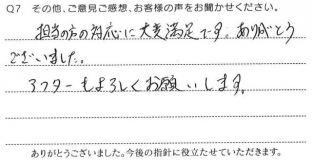 Q7 その他、ご意見ご感想、お客様の声をお聞かせください。
担当の方の対応に大変満足です。ありがとう
ございました。
アフターもよろしくお願いします。
ありがとうございました。今後の指針に役立たせていただきます。